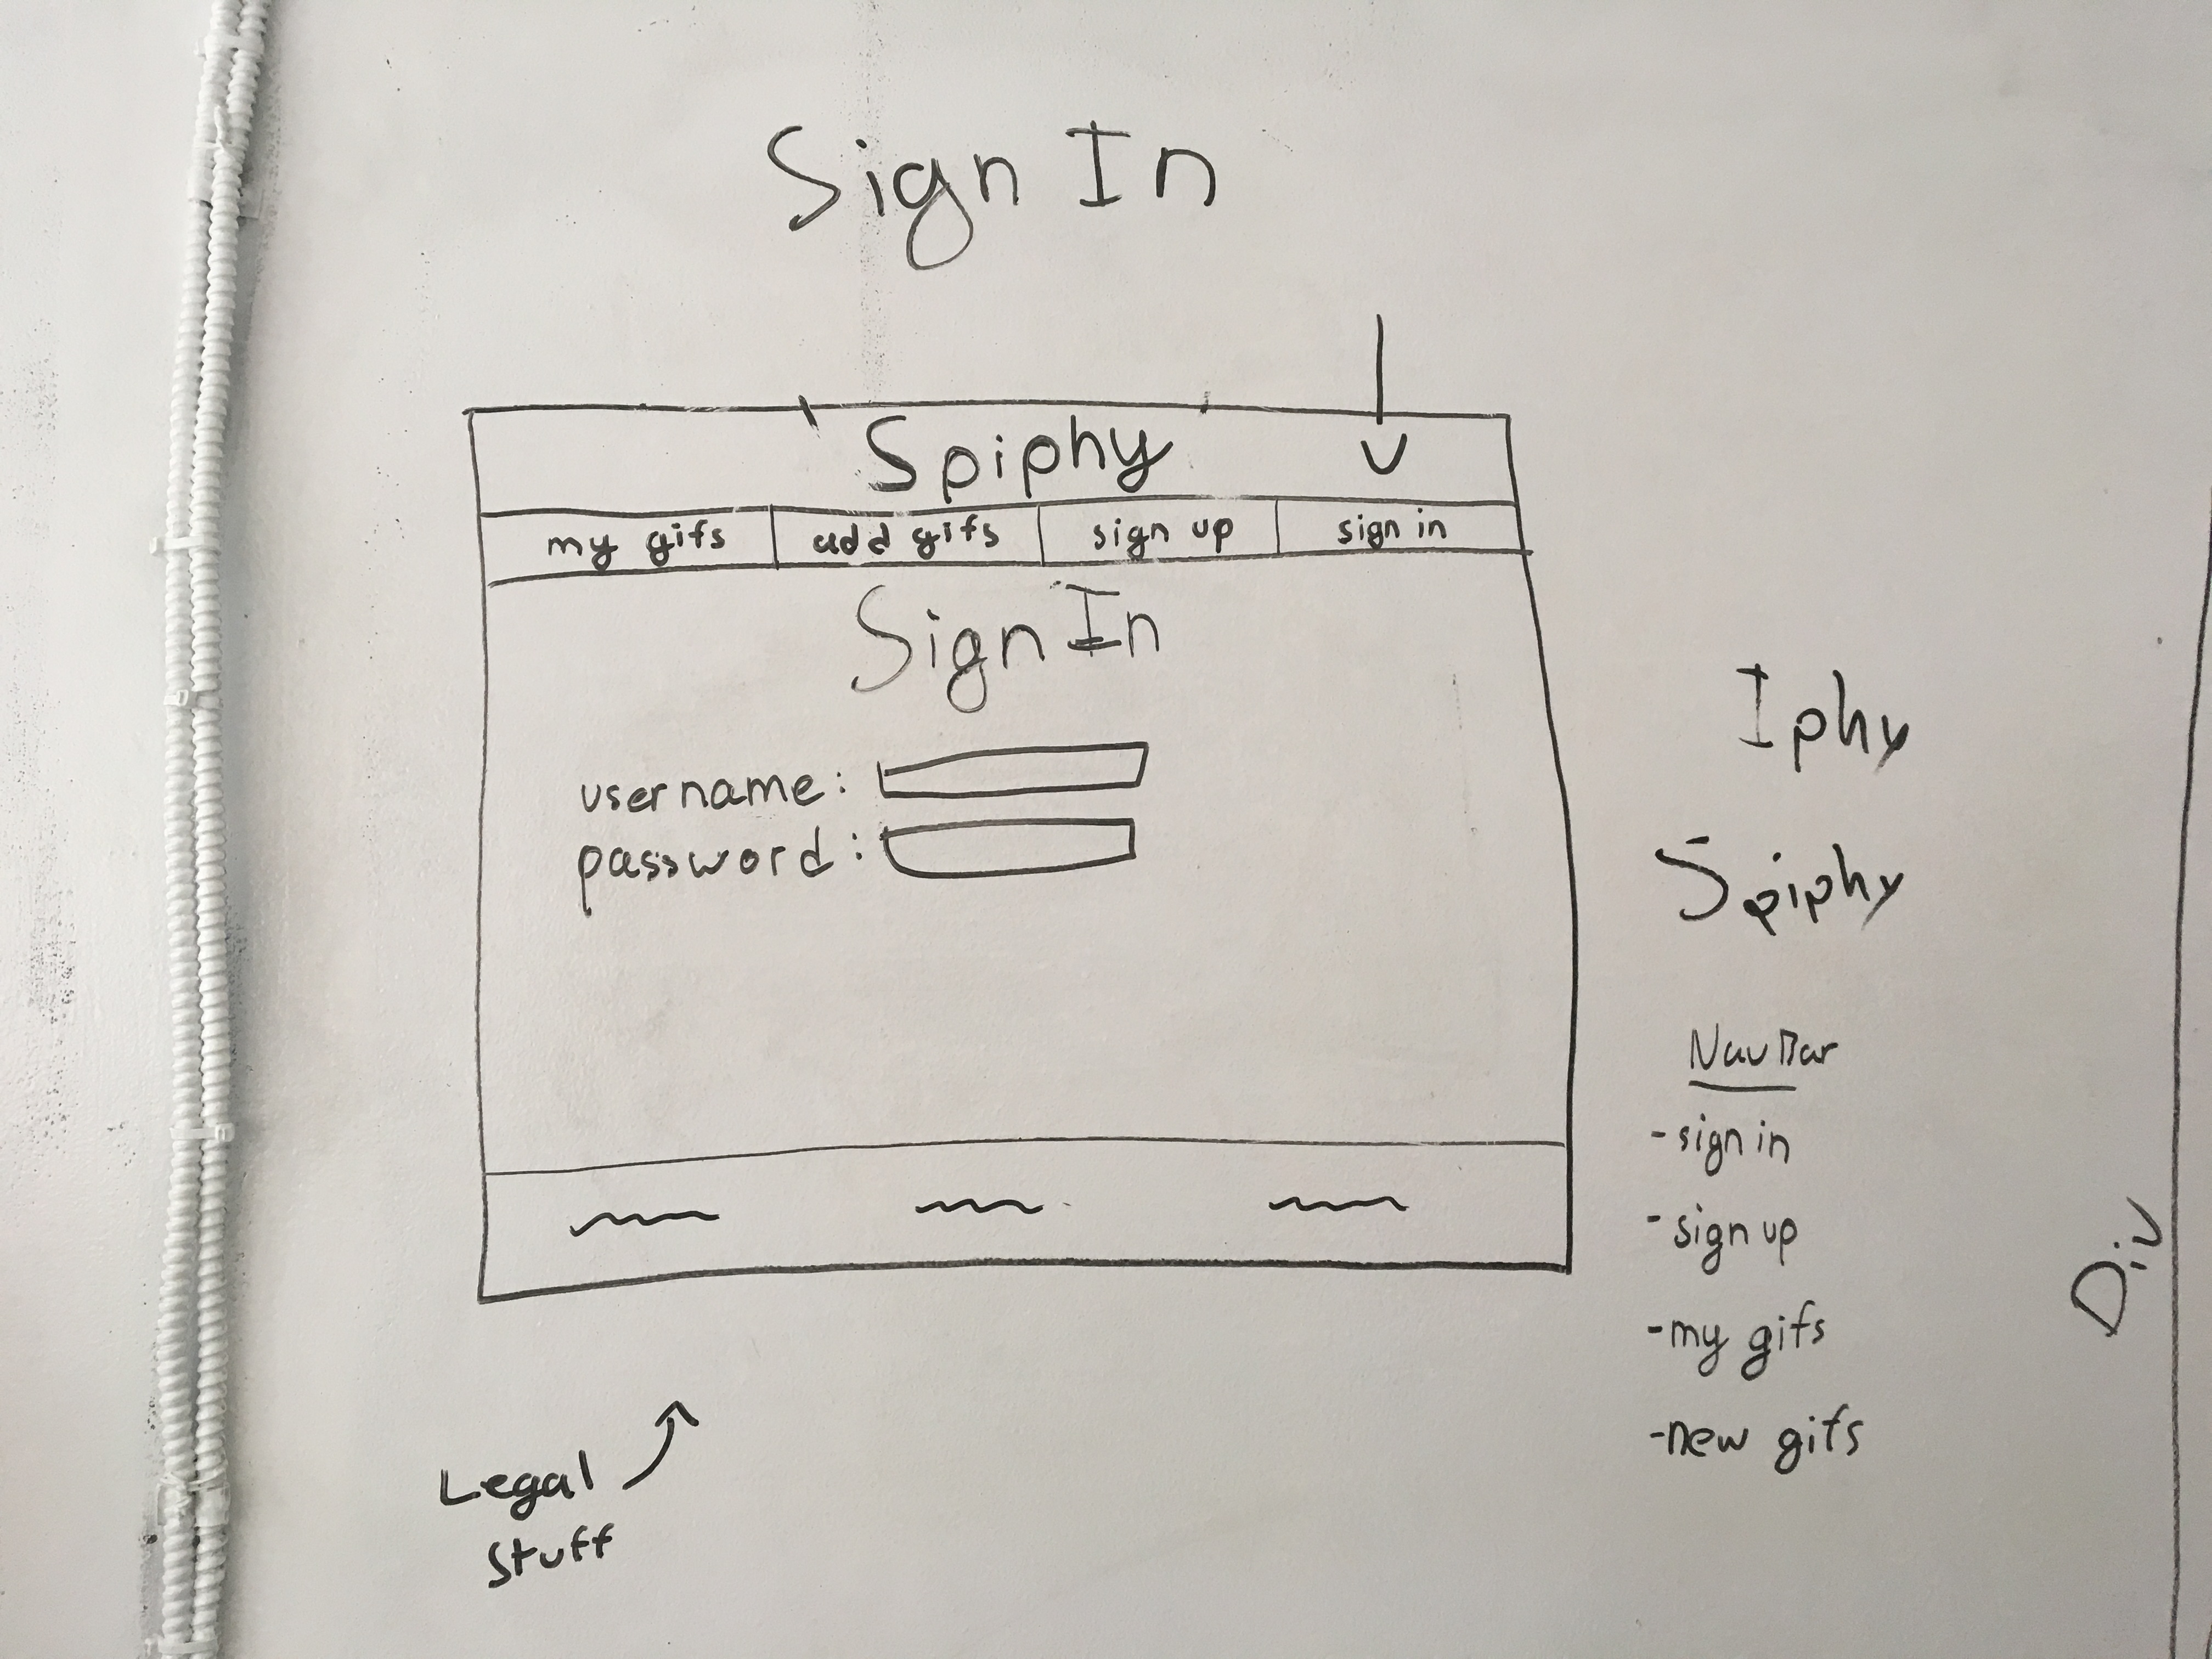 Sign In
Spiphy
my gifs add gifs sign up sign in
Sign In
username:
password:
Iphy
Spiphy
NavBar
-sign in
-sign up
-my gifs
-new gifs
Legal
stuff
Div